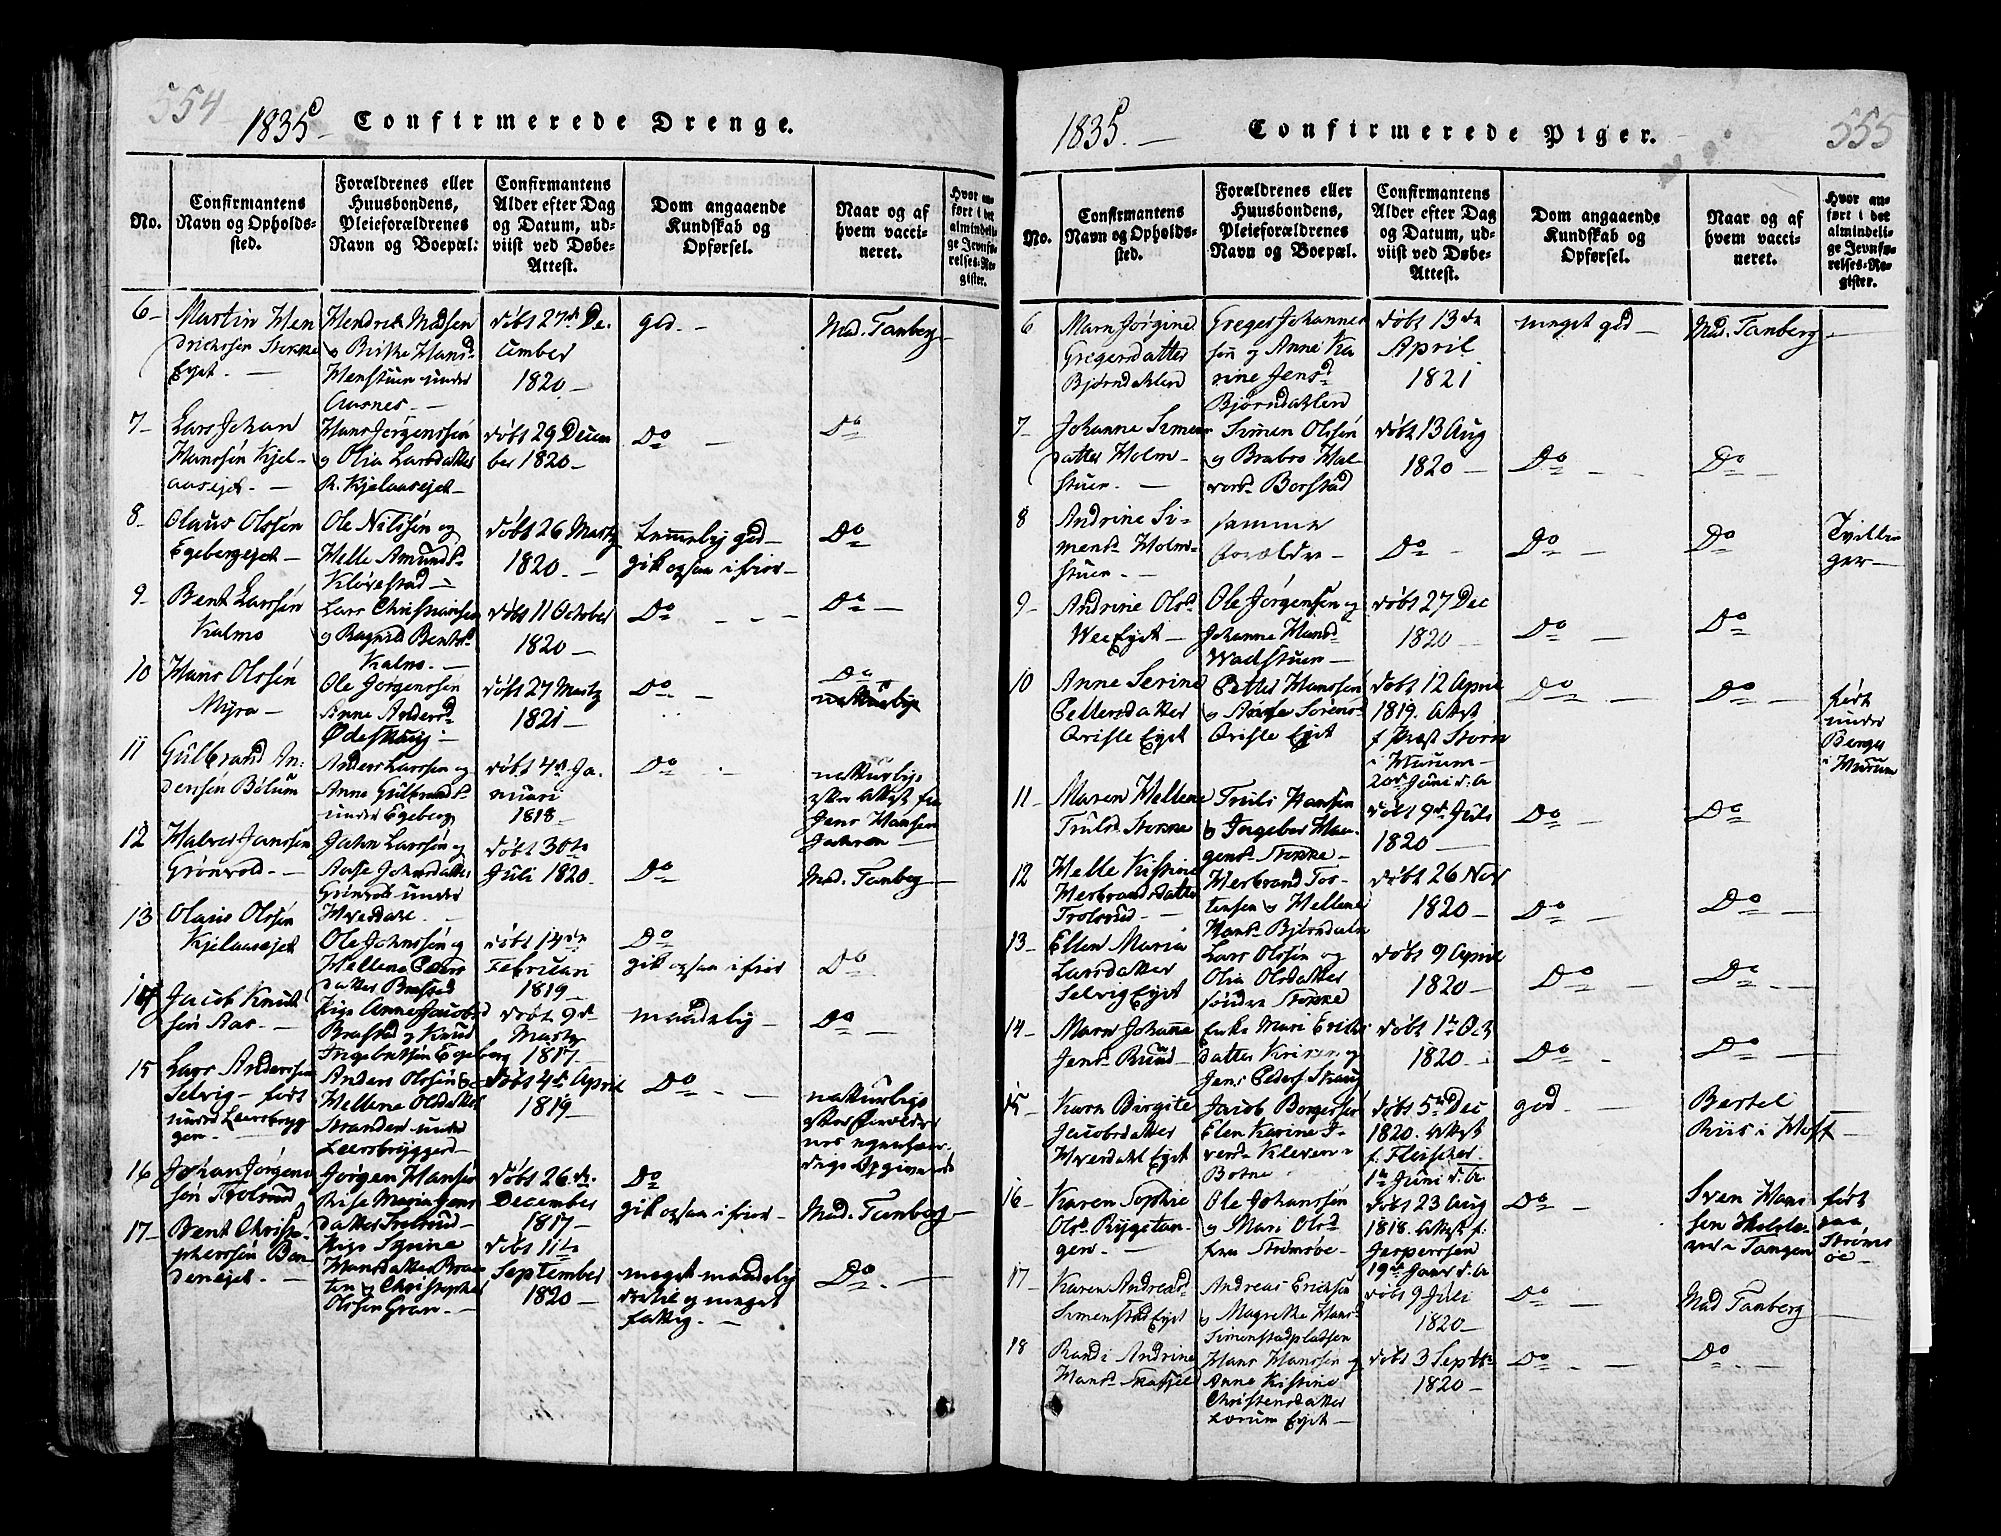 554
1835 Confirmerede Drenge.
No.
Confirmantens
Navn og Opholds-
sted.
Forældrenes eller
Huusbondens,
Pleieforældrenes
Navn og Boepæl:
Confirmantens
Alder efter Dag
og Datum, ud-
viist ved Døbe-
Attest.
Dom angaaende
Kundskab og
Opførsel.
Naar og af
hvem vacci-
neret.
Hvor an-
ført i det
almindeli-
ge Jevnfø-
relses-Re-
gister.
6 - Martin Hen
drichssen Stokke
Eyet. -
Hendrik Madsen
Hansd
Henstuen under
Aasnes. -
døbt 27d De-
cember
1820 -
god. -
Mad. Tanberg -
7 - Lars Johan
Hanssen Kjel-
aasejet. -
Hans Jørgenssen
og Olia Larsdatter
Kjelaasejet -
døbt 29 Decem
ber 1820 -
Do -
Do
8 - Olaus Olssen
Egebergejet -
Ole Nilssen og
Helle Amunds
Kløvestad -
døbt 26 Martz
1820. -
temmelig god -
gik ogsaa i fior -
Do -
9 - Bent Larssen
Kalmo
Lars Christiansen
og Bents
Kalmo. -
døbt 11 October
1820 -
Do - - -
Do -
10 Hans Olssen
Myra -
Ole Jørgenssen
Anne Andersd
Ødeskaug -
døbt 27 Martz
1821
Do -
Do
11 Gulbrand An-
dersen Bølum
Anders Larssen og
Anne Gulbrands
under Egeberg
døbt 4d Ja-
nuari
1818 -
Do -
naturlige
Attest fra
Jens Hansen
12 Halvor Janssen
Grønvold. -
Jahn Larssen og
Aase Johnsdatter
Grønvold under
Hverdale. -
døbt 30te
Juli 1820.
Do
Mad. Tanberg -
13 Olaus Olssen
Kjelaasejet
Ole Johnssen og
Hellene Peders
datter
døbt 14de
Februari
1819 -
Do
gik ogsaa i fior
Do -
14 Jacob Knud
sen Aas. -
Pige Anne Jacobsd
og Knud
Ingebretsen Egeberg
døbt 9d
Martz
1817 -
maadelig -
Do -
15 Lars Anderssen
Selvig - født
under Leersbryg
gen. -
Anders Olssen
Hellene Olsdatter
Stranden under
Leersbryggen
døbt 4d April
1819 -
Do - -
naturlige
16 Johan Jørgens
sen Trolsrud
Jørgen Hansen
Maria Jens
datter Trolsrud -
døbt 26de
December
1817 -
Do
gik ogsaa i fior -
Mad. Tanberg -
17 - Bent Christo-
pherssen Ban
denejet. -
Pige Syrine
Hansdatter Braa
ten og Christopher
Olssen Gran. -
døbt 11te
September
1820 -
meget maadelig
og meget
fattig. -
Do - -
1835. - Confirmerede Piger. - 555
No.
Confirmantens
Navn og Opholds-
sted.
Forældrenes eller
Huusbondens,
Pleieforældrenes
Navn og Boepæl.
Confirmantens
Alder efter Dag
og Datum, ud-
viist ved Døbe-
Attest.
Dom angaaende
Kundskab og
Opførsel.
Naar og af
hvem vacci-
neret.
Hvor an-
ført i det
almindeli-
ge Jevnfø-
relses-Re-
gister.
6 Maren Jørgine
Gregersdatter
Bjørndahlen
Greger Johannes
sen og Anne Ka
rine Jensd
Bjørndahlen
døbt 13de
April
1821
meget god -
Mad. Tanberg -
7 - Johanne Simens
datter Holm-
stuen. -
Simen Olssen
og Brabro Hal-
vorsd Borstad
døbt 13 Aug
1820 -
Do -
Do -
8 Andrine Si-
mensd Holm-
stuen. -
samme
Forældre -
Do -
Do -
Do
Tvillin
ger -
9 - Andrine Olsd
Wee Eyet -
Ole Jørgensen og
Johanne Hansd
Wadstuen -
døbt 27 Dec
1820 -
Do -
Do -
10 Anne Serine
Pettersdatter
Qvisle Eyet
Petter Hanssen
og Sørensd
Qvisle Eyet
døbt 12 April
1819. Attest
f. Præst Storm
i Hurum -
20d Juni d: A
Do -
Do -
født
under
Berger
i Hurum
11 - Maren Hellene
Trulsd Stokke
Truls Hansen
og Ingebor Mau
gensd Stokke -
døbt 9d Juli
1820 -
Do -
Do -
12 Helle Kistine
Herbrandsdatter
Trolsrud -
Herbrand Tor-
tensen og Hellene
Hansd Bjørndalen
døbt 26 Nov
1820 -
Do -
Do -
13 - Ellen Maria
Larsdatter
Selvig Eyet
Lars Olssen og
Olia Olsdatter
søndre Stokke
døbt 9 April
1820 -
Do -
Do - -
14 - Maren Johanne
Jensd Ruud -
Enke Mari Eriks
datter og
Jens Peders. Skaug
døbt 1te Oct
1820 -
Do -
Do -
15 - Karen Birgite
Jacobsdatter
Hverdahl Eyet
Jacob Borgerssen
Elen Karine I-
versd Kleven i
Botne -
døbt 5te Dec
1820. Attest
f. Fleischer.
1te Juni d. A.
god -
Bertel
Riis i Hoff -
16 - Karen Sophie
Olsd Bygetan-
gen. -
Ole Johanssen
og Mari Olsd
fra Strømsøe -
døbt 23 Aug
1818. Attest f:
Jesperssen
19d Janr d. A
Do -
Sven Hans
sen Holde-
Tangen
født
paa
Strøms
øe -
17 - Karen Andreasd
Simenstad Eyet
Andreas Ericksen
og Magrethe Hansd
Simenstadpladsen
døbt 9 Juli
1820 -
Do -
Mad Tanberg -
18 Randi Andrine
Hansd
Hans Hanssen og
Anne Kistine
Christensdatter
Lørum Eyet -
døbt 3 Septr
1820 -
Do - -
Do - -